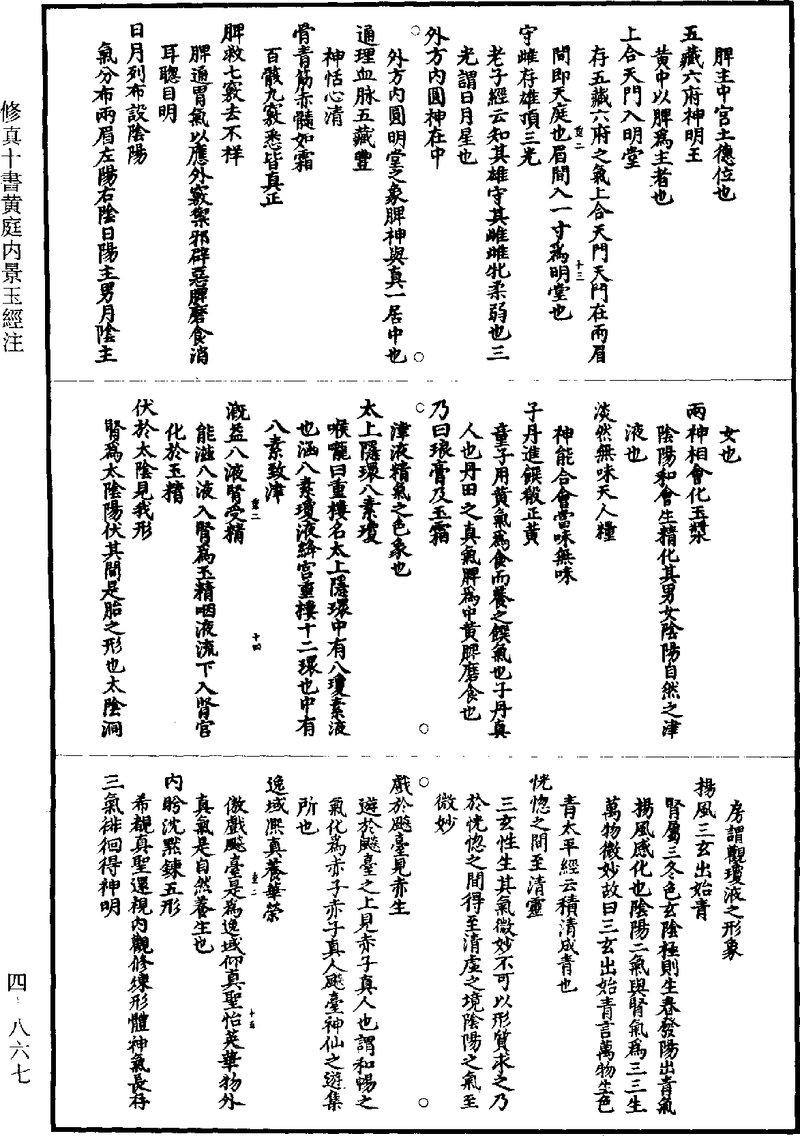 脾主中宮土德位也
五藏六府神明王
黃中以脾爲主者也
上合天門入明堂
存五藏六府之氣上合天門天門在兩眉
間即天庭也眉間入一寸爲明堂也
守雌存雄頂三光
老子經云知其雄守其雌雌牝柔弱也三
光謂日月星也
外方内圓神在中
外方内圓明堂之象脾神與真一居中也
通理血脉五藏豐
神恬心清
骨青筋赤髓如霜
百骸九竅悉皆真正
脾救七竅去不祥
脾通胃氣以應外竅禦邪辟惡脾磨食消
耳聰目明
日月列布設陰陽
氣分布兩眉左陽右陰日陽主男月陰主
女也
兩神相會化玉漿
陰陽和會生精化其男女陰陽自然之津
液也
淡然無味天人糧
神能合會當味無味
子丹進饌殽正黃
童子用黃氣爲食而養之饌氣也子丹真
人也丹田之真氣脾爲中黃脾磨食也
乃曰琅膏及玉霜
津液精氣之色象也
太上隱環八素瓊
喉嚨曰重樓名太上隱環中有八瓊素液
也涵八素瓊液絳宮重樓十二環也中有
八素致津
溉益八液腎受精
能滋八液入腎爲玉精咽液流下入腎宮
化於玉精
伏於太陰見我形
腎爲太陰陽伏其間是胎之形也太陰洞
房謂觀瓊液之形象
揚風三玄出始青
腎屬三冬色玄陰極則生春發陽出青氣
揚風感化也陰陽二氣與腎氣爲三三生
萬物微妙故曰三玄出始青言萬物生色
青太平經云積清成青也
恍惚之間至清靈
三玄性生其氣微妙不可以形質求之乃
於恍惚之間得至清虛之境陰陽之氣至
微妙
戲於飈臺見赤生
遊於飈臺之上見赤子真人也謂和暢之
氣化爲赤子赤子真人飈臺神仙之遊集
所也
逸域熙真養華榮
傲戲飈臺是爲逸域仰真聖怡英華物外
真氣是自然養生也
内盼沈默鍊五形
希覩真聖還視内觀修煉形體神氣長存
三氣徘徊得神明
修真十書黄庭内景玉經注
四·八六七